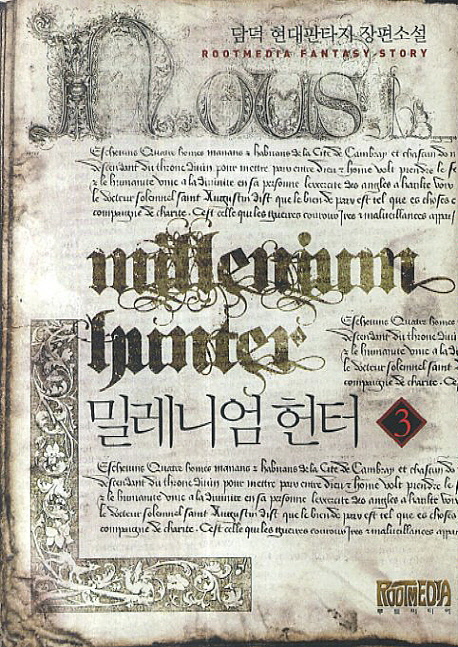 담덕 현대판타지 장편소설
ROOTMEDIA FANTASY STORY
Nous
Eschevins Quatre homes manans & habitans de la Cité de Cambray et chascun
descendant du throne divin pour mettre paix entre dieu & home volt prendre le
& le humanite unie a la divinite en sa personne
le docteur solennel saint Augustin dist que le bien de paix est tel que es choses
compaignie de charite. C'est celle qui les guerres malveillances
millenium
hunter
Eschevins Quatre homes
descendant du throne
& le humanite unie a la
le docteur solennel saint
compaignie de charite.
밀레니엄 헌터 3
Eschevins Quatre homes manans & habitans de la Cité de Cambray et chascun
descendant du throne divin pour mettre paix entre dieu & home volt prendre le
& le humanite unie a la divinite en sa personne
le docteur solennel saint Augustin dist que le bien de paix est tel que es choses
compaignie de charite. C'est celle qui les guerres malveillances
ROOTMEDIA
루트미디어